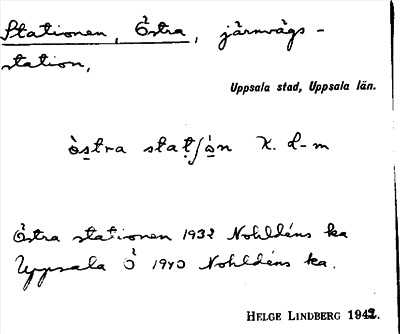 Stationen, Östra, järnvägs-
station,
Uppsala stad, Uppsala län.
östra
Östra stationen 1932 Nohldéns ka
Uppsala Ö 1940 Nohldéns ka.
HELGE LINDBERG 1942.